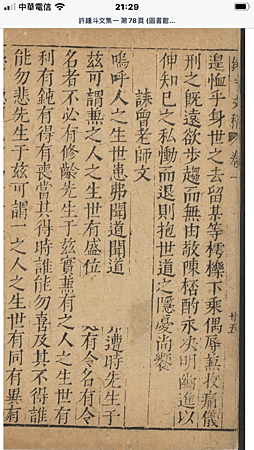 中華電信
21:29
許鍾斗文集一 第78頁 (圖書館...
卷一
遑恤乎身世之去留某等樗櫟下乘偶辱蕪收痛儀
刑之旣遠欲步趨而無由敬陳桮酌永夾明幽進以
伸知已之私慟而退則抱世道之隱憂尚饗
誄曾老師文
嗚呼人之生世患弗聞道聞道 遭時先生于
茲可謂兼之人之生世有盛位 有令名有令
名者不必有修齡先生于茲實兼有之人之生世有
利有鈍有得有喪當其得時誰能勿喜及其不得誰
能勿悲先生于茲可謂一之人之生世有同有異有